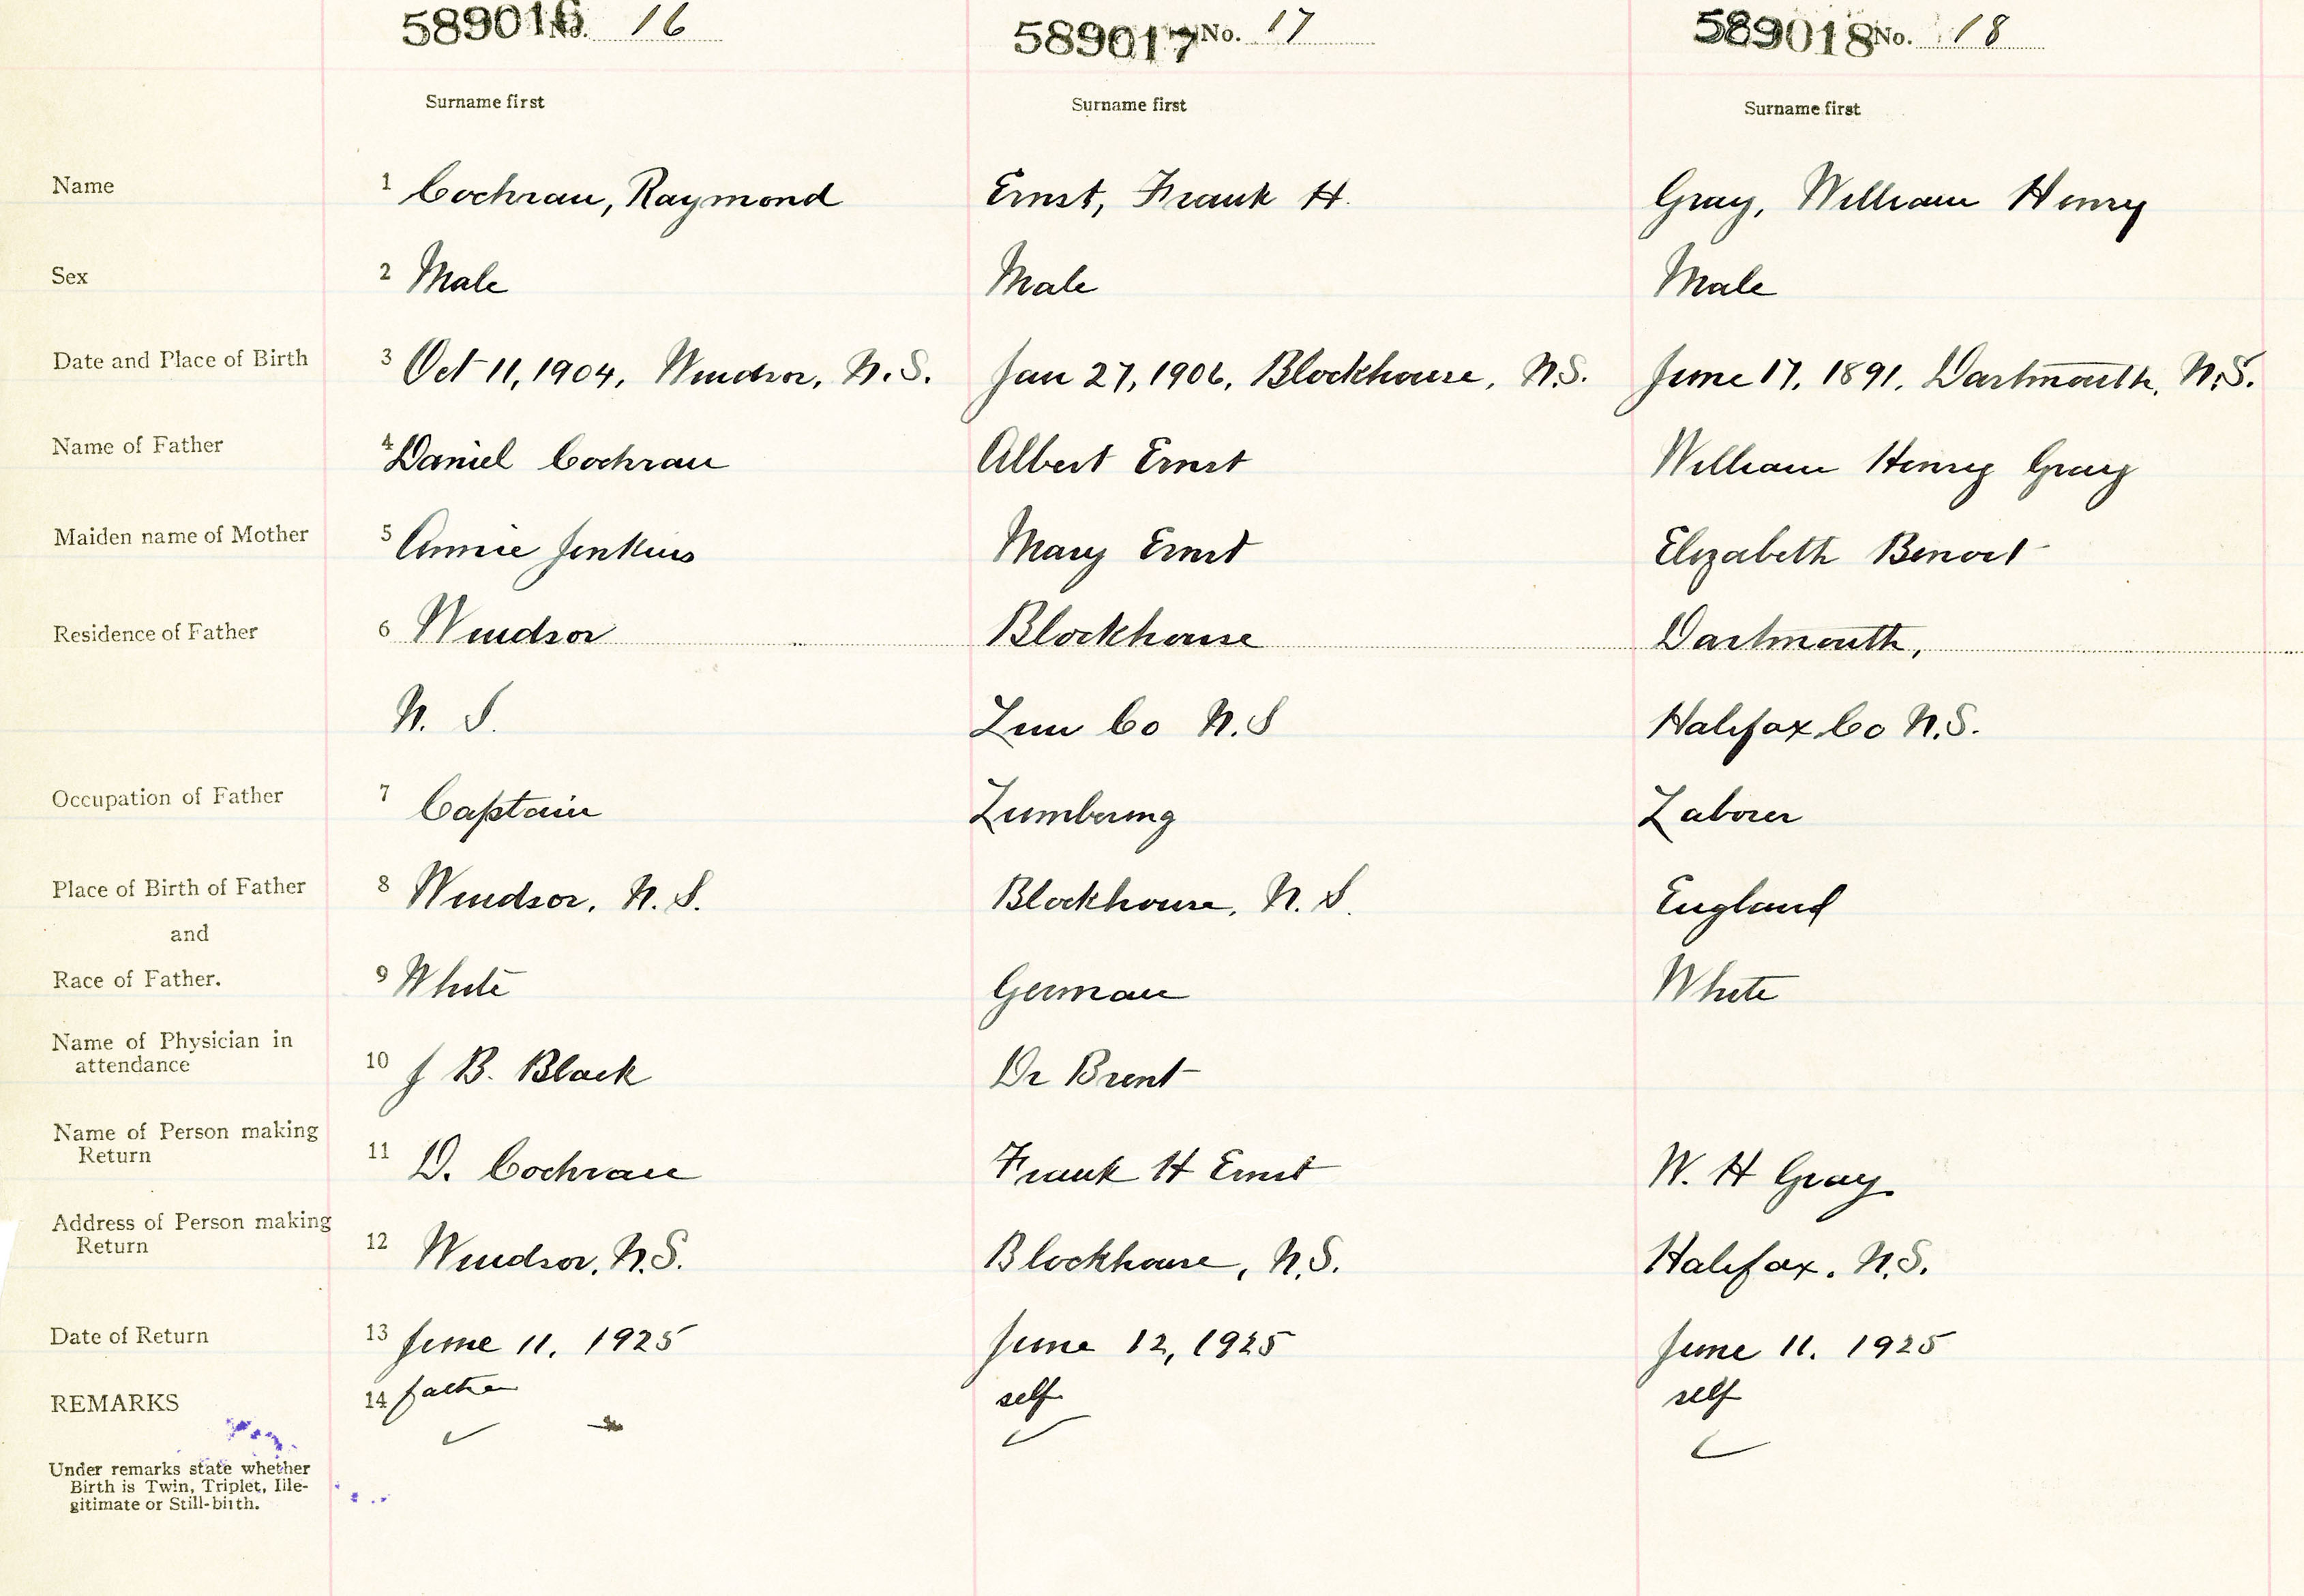 589016 No. 16 589017 No. 17 589018 No. 18
Surname first Surname first Surname first
Name 1 Cochran, Raymond Ernst, Frank H. Gray, William Henry
Sex 2 Male Male Male
Date and Place of Birth 3 Oct 11, 1904, Windsor, N.S. Jan 27, 1906, Blockhouse, N.S. June 17, 1891, Dartmouth, N.S.
Name of Father 4 Daniel Cochran Albert Ernst William Henry Gray
Maiden name of Mother 5 Annie Jenkins Mary Ernst Elizabeth Benoit
Residence of Father 6 Windsor Blockhouse Dartmouth,
N. S. Lun Co N.S Halifax Co N.S.
Occupation of Father 7 Captain Lumbering Laborer
Place of Birth of Father 8 Windsor, N. S. Blockhouse, N. S. England
and
Race of Father. 9 White German White
Name of Physician in
attendance 10 J B. Black Dr Brent
Name of Person making
Return 11 D. Cochran Frank H Ernst W. H Gray
Address of Person making
Return 12 Windsor, N.S. Blockhouse, N.S. Halifax, N.S.
Date of Return 13 June 11, 1925 June 12, 1925 June 11, 1925
REMARKS 14 father self self
Under remarks state whether
Birth is Twin, Triplet, Ille-
gitimate or Still-birth.